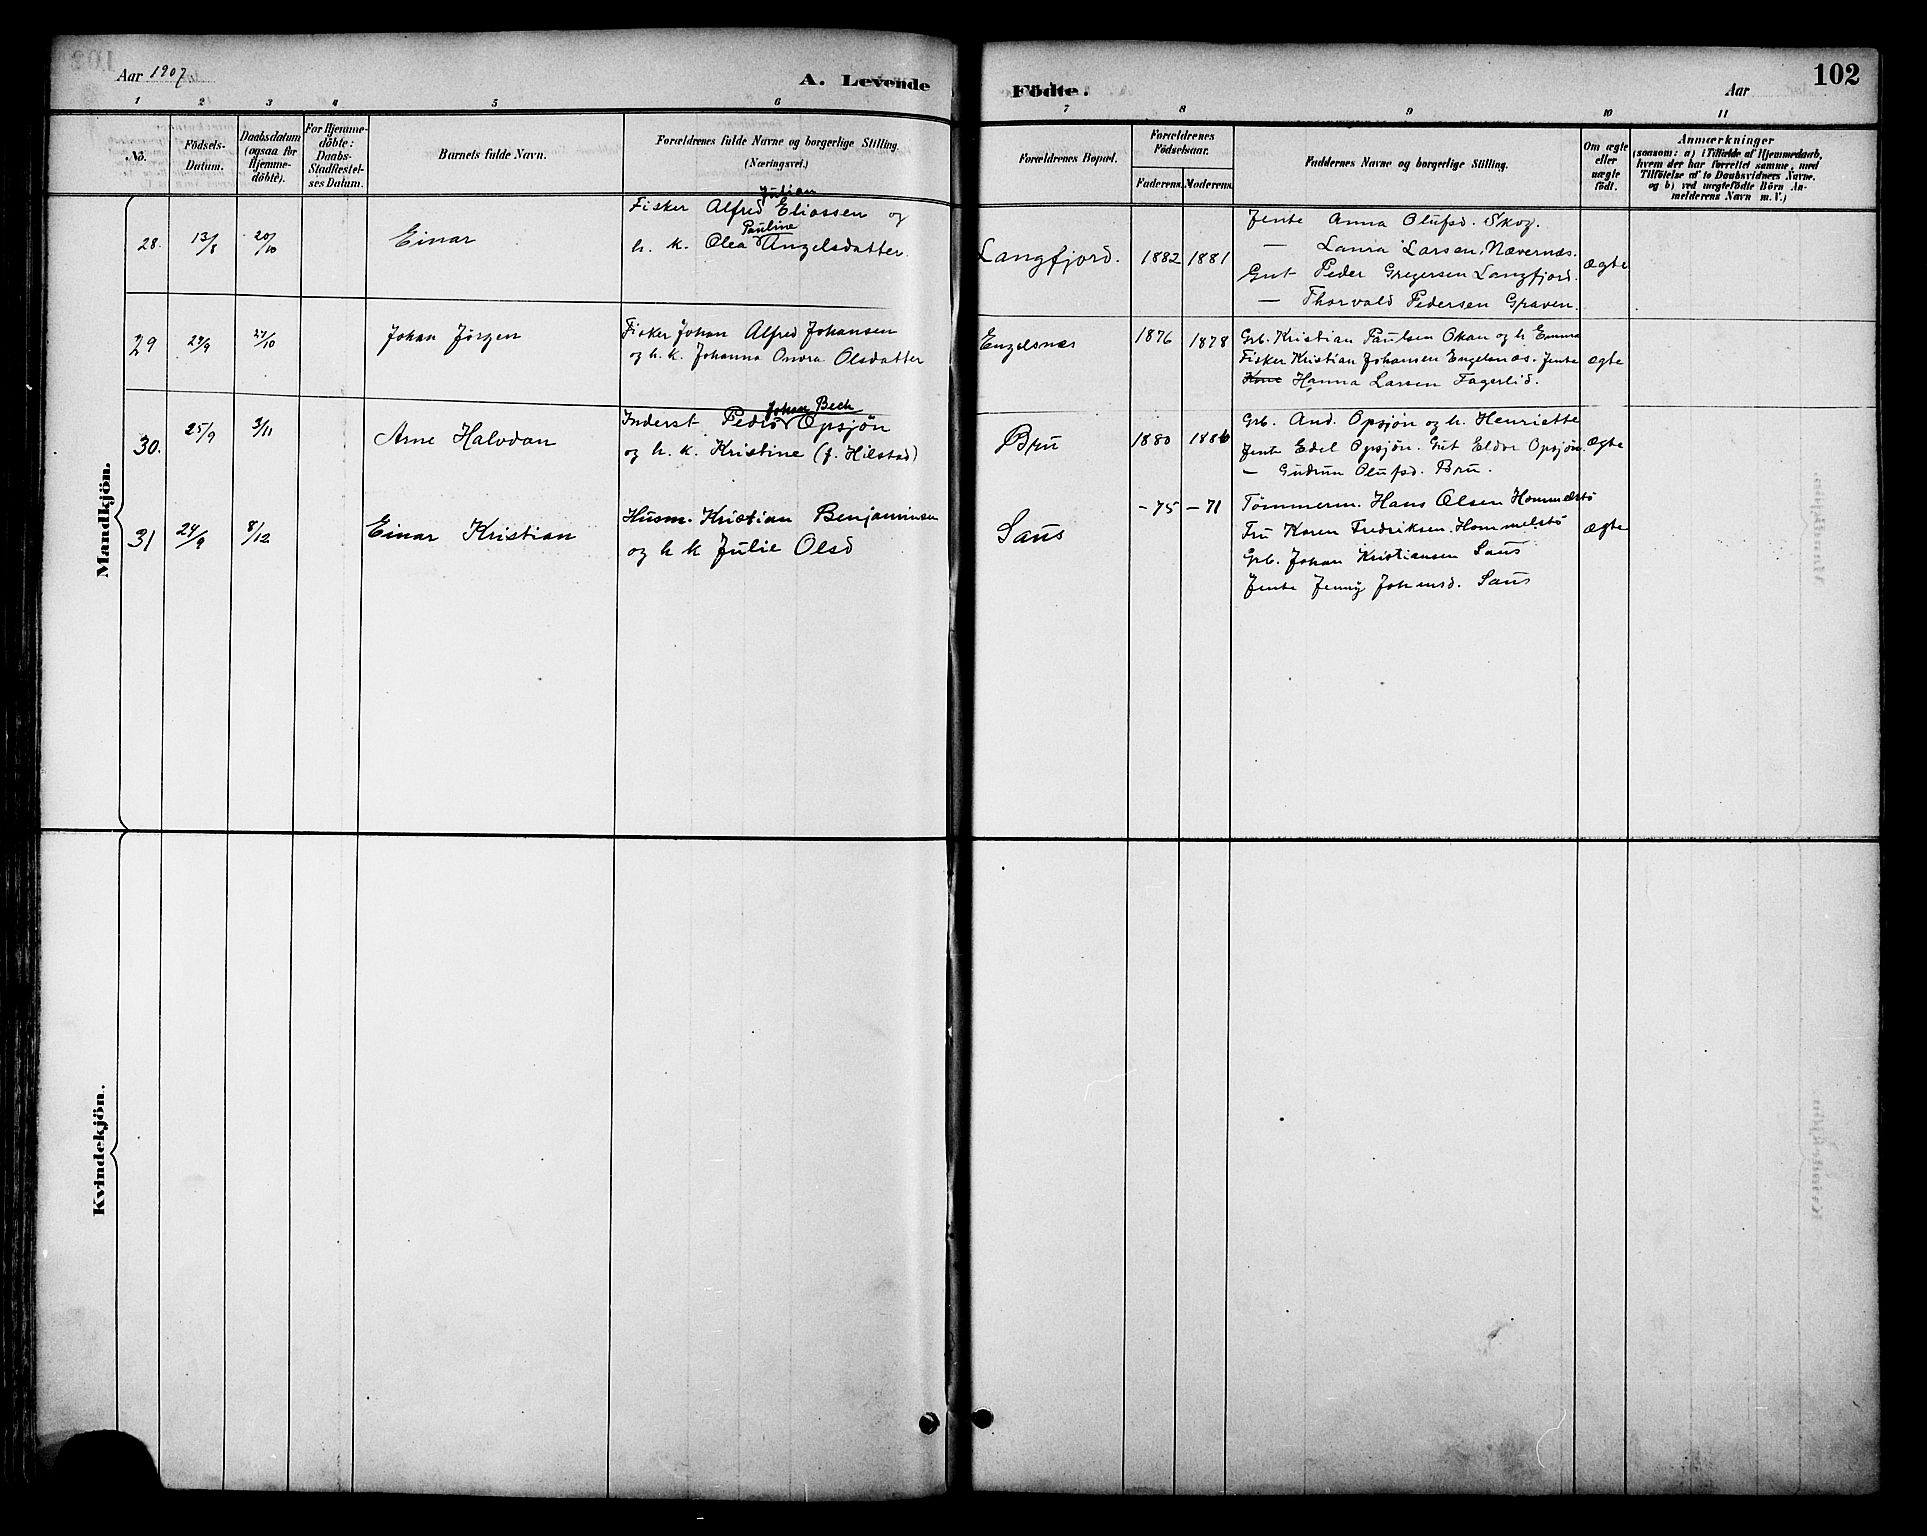 Aar 1907.
A. Levende Födte.
Aar
102
1 2 3 4 5 6 7 8 9 10 11
No.
Födsels-Datum.
Daabsdatum (ogsaa for Hjemme-döbte).
For Hjemme-döbte: Daabs-Stadfæstel-ses Datum.
Barnets fulde Navn.
Forældrenes fulde Navne og borgerlige Stilling. (Næringsvei.)
Forældrenes Bopæl.
Forældrenes Födselsaar.
Faderens. Moderens.
Faddernes Navne og borgerlige Stilling.
Om ægte eller uægte födt.
Anmærkninger
(saasom: a) i Tilfælde af Hjemmedaab,
hvem der har forrettet samme, med
Tilföielse af to Daabsvidners Navne,
og b) ved uægtefödte Börn An-
melderens Navn m. V.)
Mandkjön.
28. 13/8 20/10 Einar
Julian
Fisker Alfred Eliassen og
Pauline
h. k. Olea Angelsdatter.
Langfjord. 1882 1881
Jente Anna Olufsd. Skog.
— Laura Larsen, Nævernæs.
Gut Peder Gregersen Langfjord.
— Thorvald Pedersen Graven.
ægte
29 29/9 27/10 Johan Jørgen
Fisker Johan Alfred Johansen
og h. k. Johanna Ondra Olsdatter
Engelsnes 1876 1878
Grb. Kristian Paulsen Okan og h. Emma
Fisker Kristian Johansen Engelsnæs. Jente
Kone Hanna Larsen Fagerlid.
ægte
30. 25/9 3/11 Arne Halvdan
Johan Bech
Inderst Pedro Opsjøn
og h. k. Kristine (f. Hilstad)
Bru 1880 1886
Grb. And. Opsjøn og h. Henriette
Jente Edel Opsjøn. Gut Eldor Opsjøn.
— Gudrun Olufsd. Bru.
ægte
31 24/9 8/12 Einar Kristian
Husm. Kristian Benjaminsen
og h k Julie Olsd
Saus - 75 - 71
Tømmerm. Hans Olsen Hommelstø
Fru Karen Fredriksen. Hommelstø
Grb. Johan Kristiansen Saus
Jente Jenny Johansd. Saus
ægte
Kvindekjön.